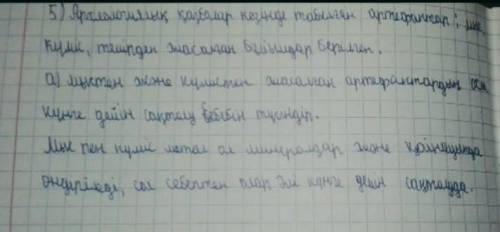 5) Археологиялық қазбалар кезінде табылған артефактар: мыс
күміс, темірден жасалған бұйымдар берілген.
а) мыстен және күмістен жасалған артефактардың осы
күнге дейін сақталу себебін түсіндір.
Мыс пен күміс метал ол минералдар және
өндіріледі, сол себептен олар әлі күнге дейін сақталуда.